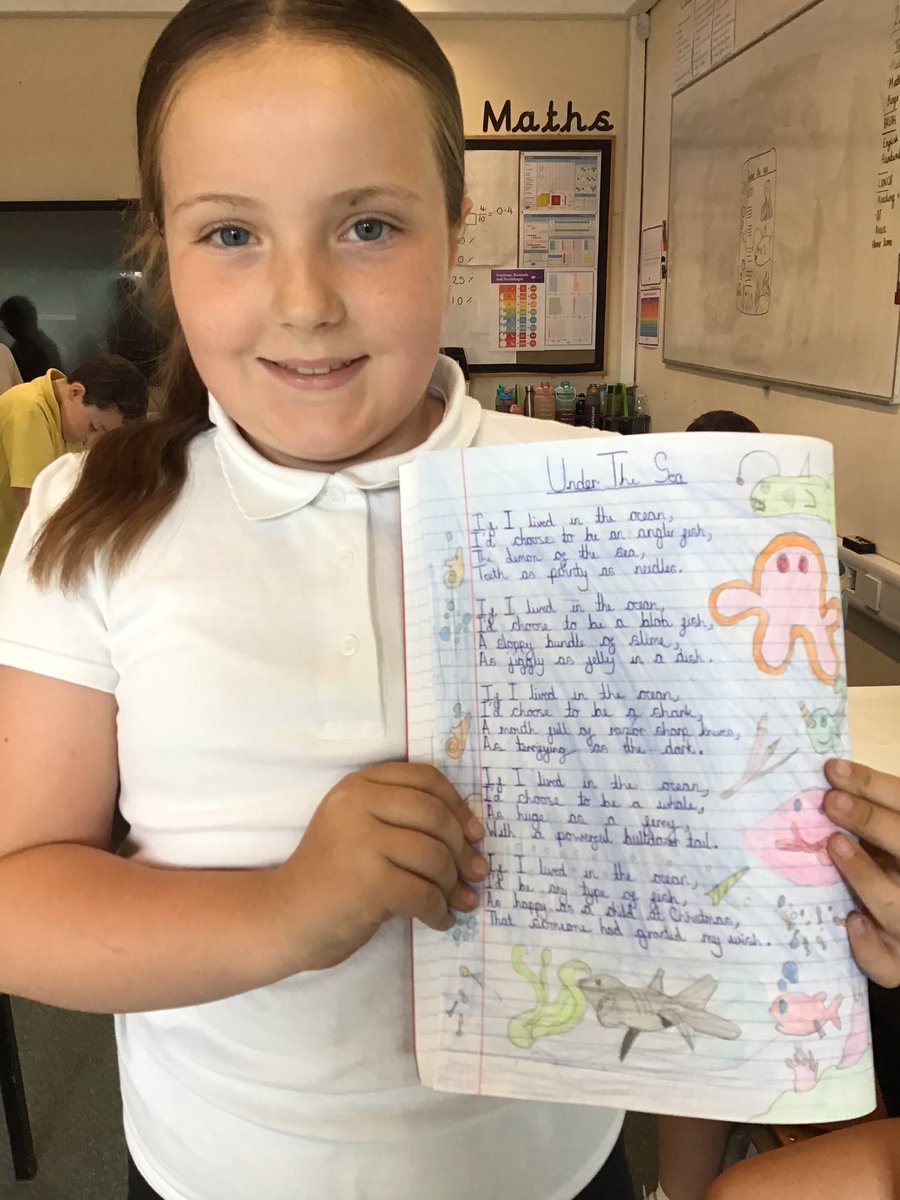 Maths
4/10 = 0.4
25%
10%
Fractions, Decimals and Percentages
BREAK
English
LUNCH
Reading
Home time
Under The Sea
If I lived in the ocean,
I'd choose to be an angler fish,
The demon of the sea,
Teeth as pointy as needles.
If I lived in the ocean,
I'd choose to be a blob fish,
A sloppy bundle of slime,
As jiggly as jelly in a dish.
If I lived in the ocean,
I'd choose to be a shark,
A mouth full of razor sharp knives,
As terrifying as the dark.
If I lived in the ocean,
I'd choose to be a whale,
As huge as a ferry,
With a powerful bulldozer tail.
If I lived in the ocean,
I'd be any type of fish,
As happy as a child at Christmas,
That someone had granted my wish.